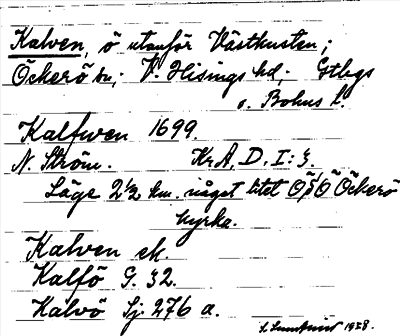 Kalven, ö utanför Västkusten;
Öckerö sn; V. Hisings hd. Gtbgs
o. Bohus l.
Kalfwen 1699.
N. Ström. KrA, D, I: 3.
Läge 2½ km. något litet ÖSÖ Öckerö
kyrka.
Kalven ek.
Kalfö G. 32.
Kalvö Sj. 276 a.
1928.